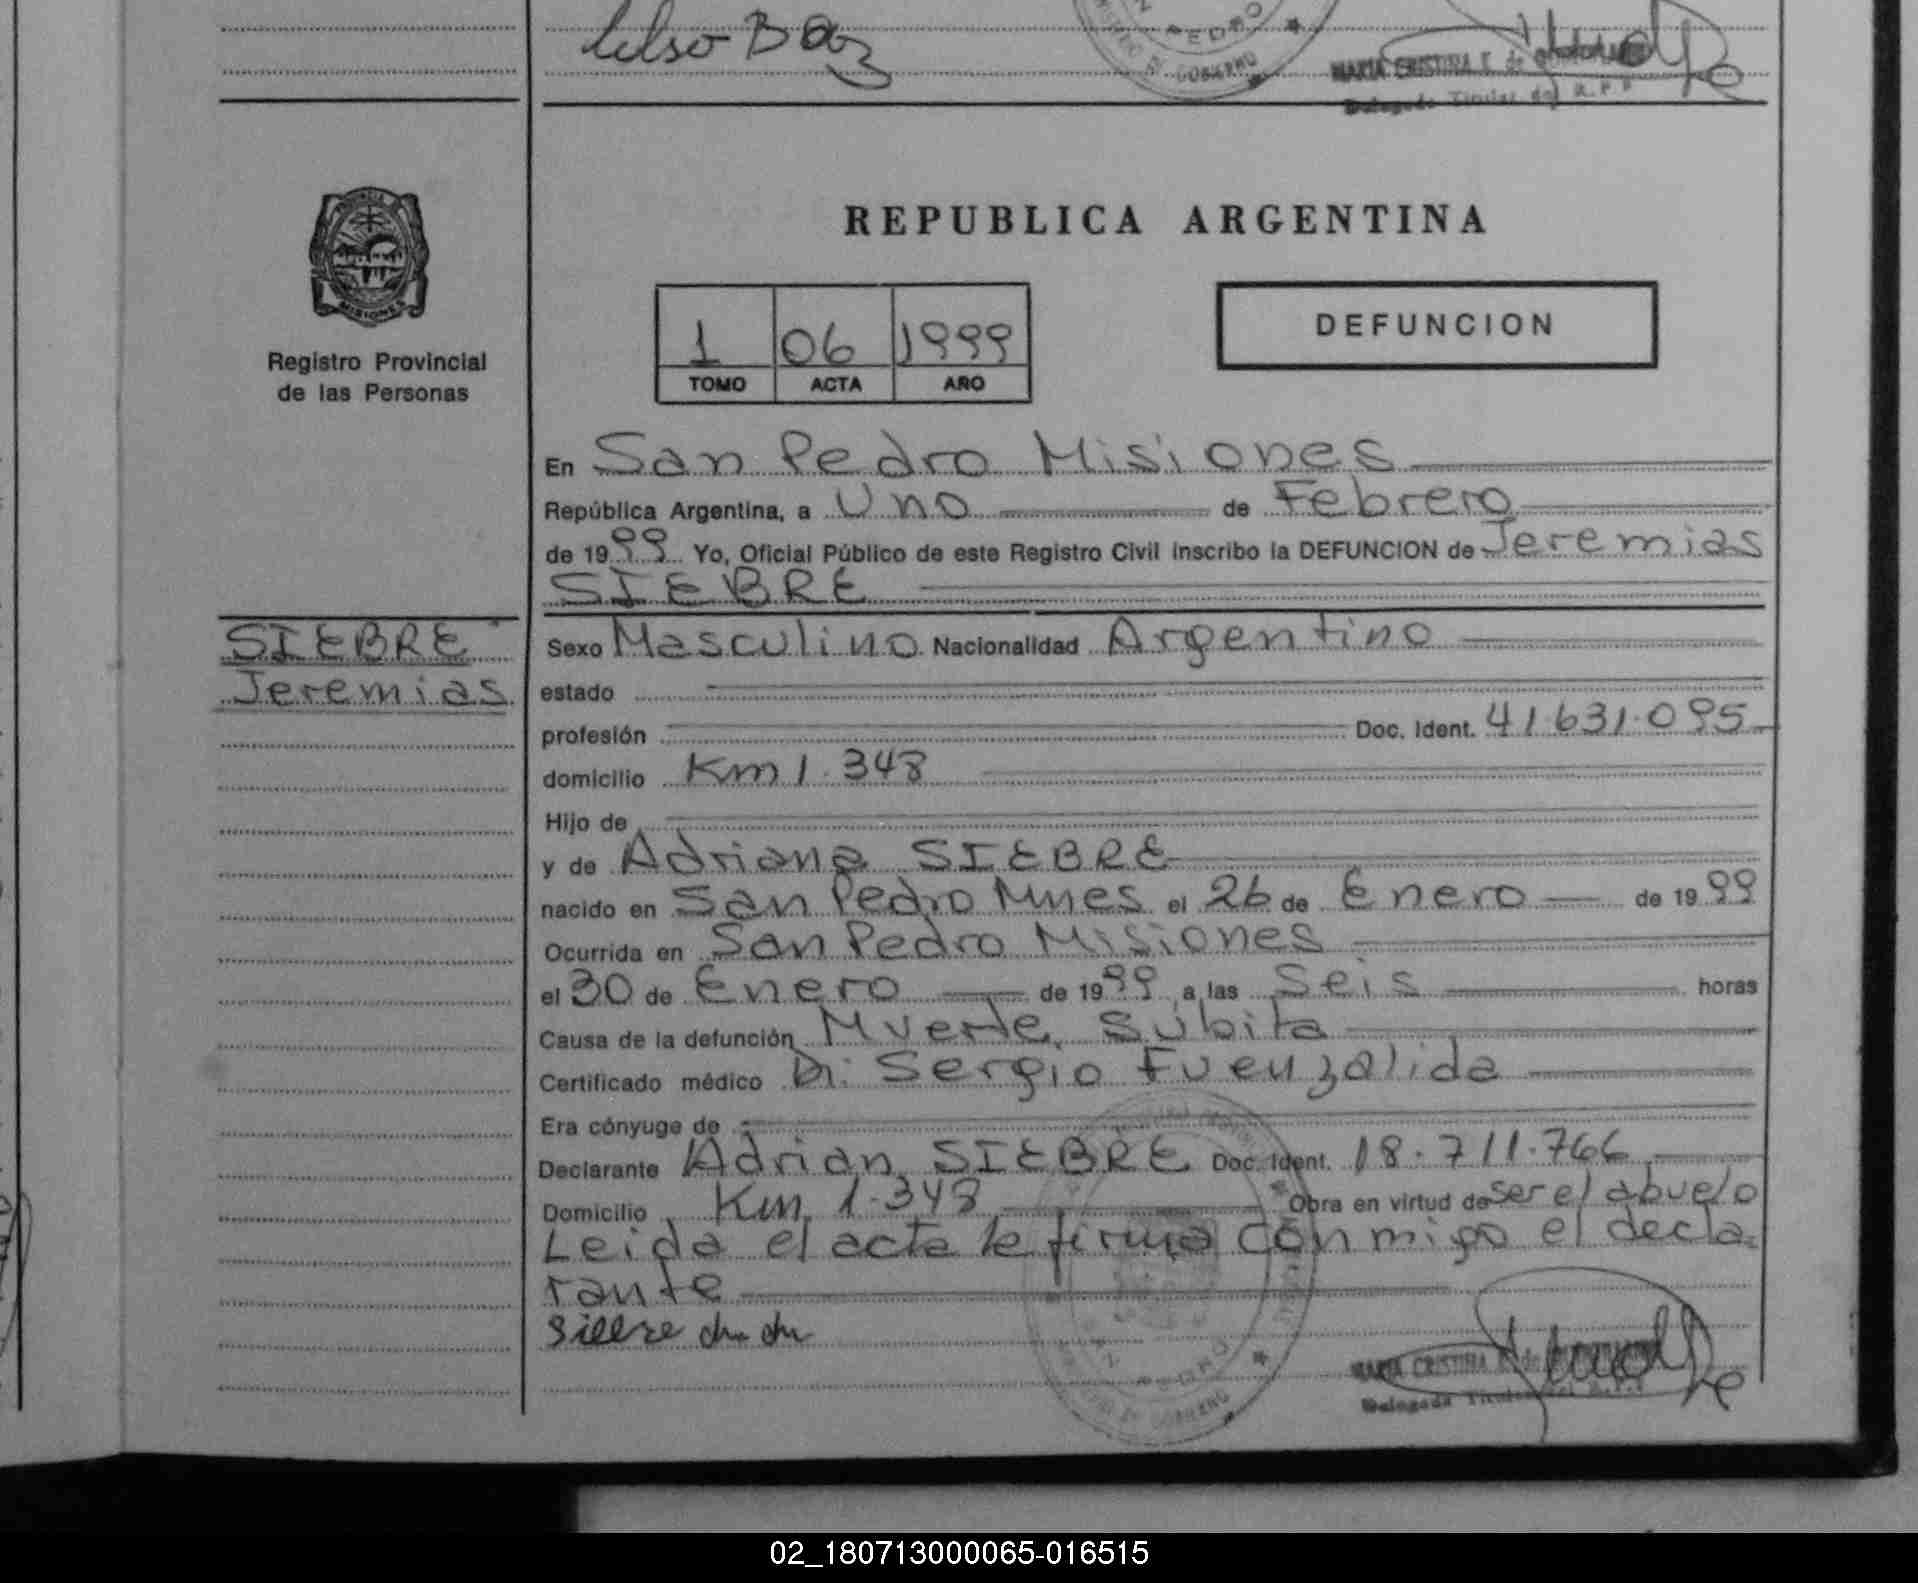 Celso Baz
PEDRO
DE GOBIERNO
MARIA CRISTINA E. de
Delegada Titular del R.P.P
PROVINCIA
MISIONES
Registro Provincial
de las Personas
REPUBLICA ARGENTINA
1 06 1999
TOMO ACTA AÑO
DEFUNCION
En San Pedro Misiones
República Argentina, a Uno de Febrero
de 1999 Yo, Oficial Público de este Registro Civil inscribo la DEFUNCION de Jeremias
SIEBRE
SIEBRE
Jeremias
Sexo Masculino Nacionalidad Argentino
estado
profesión Doc. Ident. 41.631.095
domicilio Km 1.348
Hijo de
y de Adriana SIEBRE
nacido en San Pedro Mnes el 26 de Enero de 1999
Ocurrida en San Pedro Misiones
el 30 de Enero de 1999 a las Seis horas
Causa de la defunción Muerte Súbita
Certificado médico Dr. Sergio Fuenzalida
Era cónyuge de
Declarante Adrian SIEBRE Doc. Ident. 18.711.766
Domicilio Km 1.348 Obra en virtud de ser el abuelo
Leida el acta la firma conmigo el decla-
rante
PEDRO
DE GOBIERNO
MARIA CRISTINA E. de
Delegada Titular del R.P.P
02_180713000065-016515